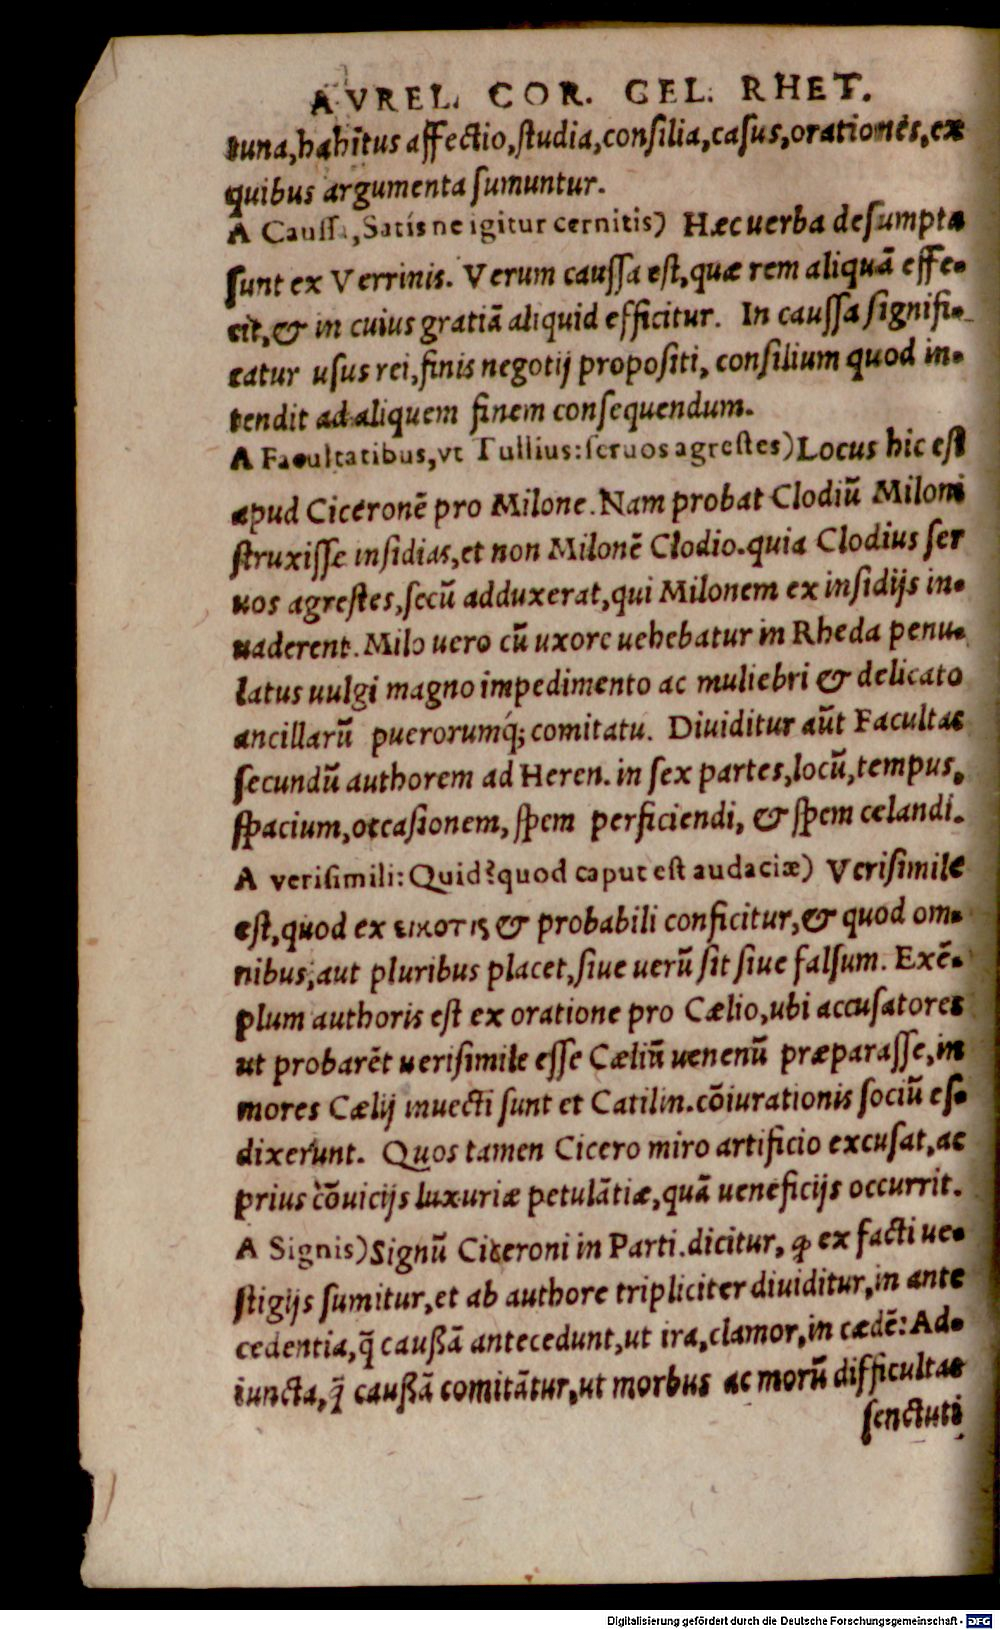 AVREL. COR. CEL. RHET.
tuna,habitus affectio,studia,consilia,casus,orationes,ex
quibus argumenta sumuntur.
A Caussa,Satis ne igitur cernitis) Hæc uerba desumpta
sunt ex Verrinis. Verum caussa est,quæ rem aliquā effe-
cit,& in cuius gratiā aliquid efficitur. In caussa signifi-
catur usus rei,finis negotij propositi, consilium quod in-
tendit ad aliquem finem consequendum.
A Facultatibus,vt Tullius:seruos agrestes)Locus hic est
apud Ciceronē pro Milone.Nam probat Clodiū Miloni
struxisse insidias,et non Milonē Clodio.quia Clodius ser
uos agrestes,secū adduxerat,qui Milonem ex insidijs in-
uaderent.Milo uero cū uxore uehebatur in Rheda penu-
latus uulgi magno impedimento ac muliebri & delicato
ancillarū puerorumq́; comitatu. Diuiditur aūt Facultas
secundū authorem ad Heren. in sex partes,locū,tempus,
spacium,occasionem,spem perficiendi, & spem celandi.
A verisimili: Quid?quod caput est audaciæ) Verisimile
est,quod ex εικοτις & probabili conficitur,& quod om-
nibus,aut pluribus placet,siue uerū sit siue falsum. Exē-
plum authoris est ex oratione pro Cælio,ubi accusatores
ut probarēt uerisimile esse Cæliū uenenū præparasse,in
mores Cælij inuecti sunt et Catilin.cōiurationis sociū es-
dixerunt. Quos tamen Cicero miro artificio excusat,ac
prius cōuicijs luxuriæ petulātiæ,quā ueneficijs occurrit.
A Signis)Signū Ciceroni in Parti.dicitur, ꝙ ex facti ue-
stigijs sumitur,et ab authore tripliciter diuiditur,in ante
cedentia,q̄ caußā antecedunt,ut ira,clamor,in cædē: Ad-
iuncta,q̄ caußā comitātur,ut morbus ac morū difficultas
senctuti
Digitalisierung gefördert durch die Deutsche Forschungsgemeinschaft - DFG